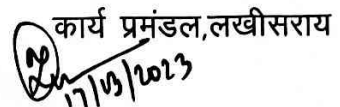 कार्य प्रमंडल,लखीसराय
17/03/2023